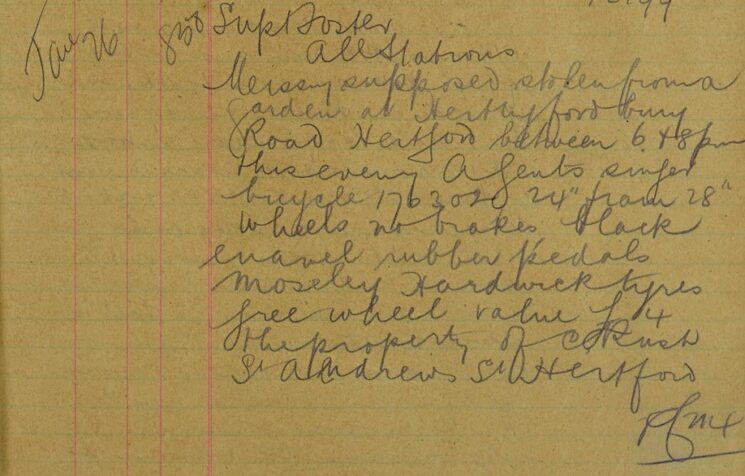 Jan 26 838 Supt Foster
All Stations
Missing supposed stolen from a
garden at Hertingfordbury
Road Hertford between 6 & 8 pm
this eveng A Gents singer
bicycle 176302 24" fram 28"
Wheels no brakes black
enavel rubber pedals
Moseley Hardwick tyres
free wheel value £4
the property of C Rush
St Andrews St Hertford